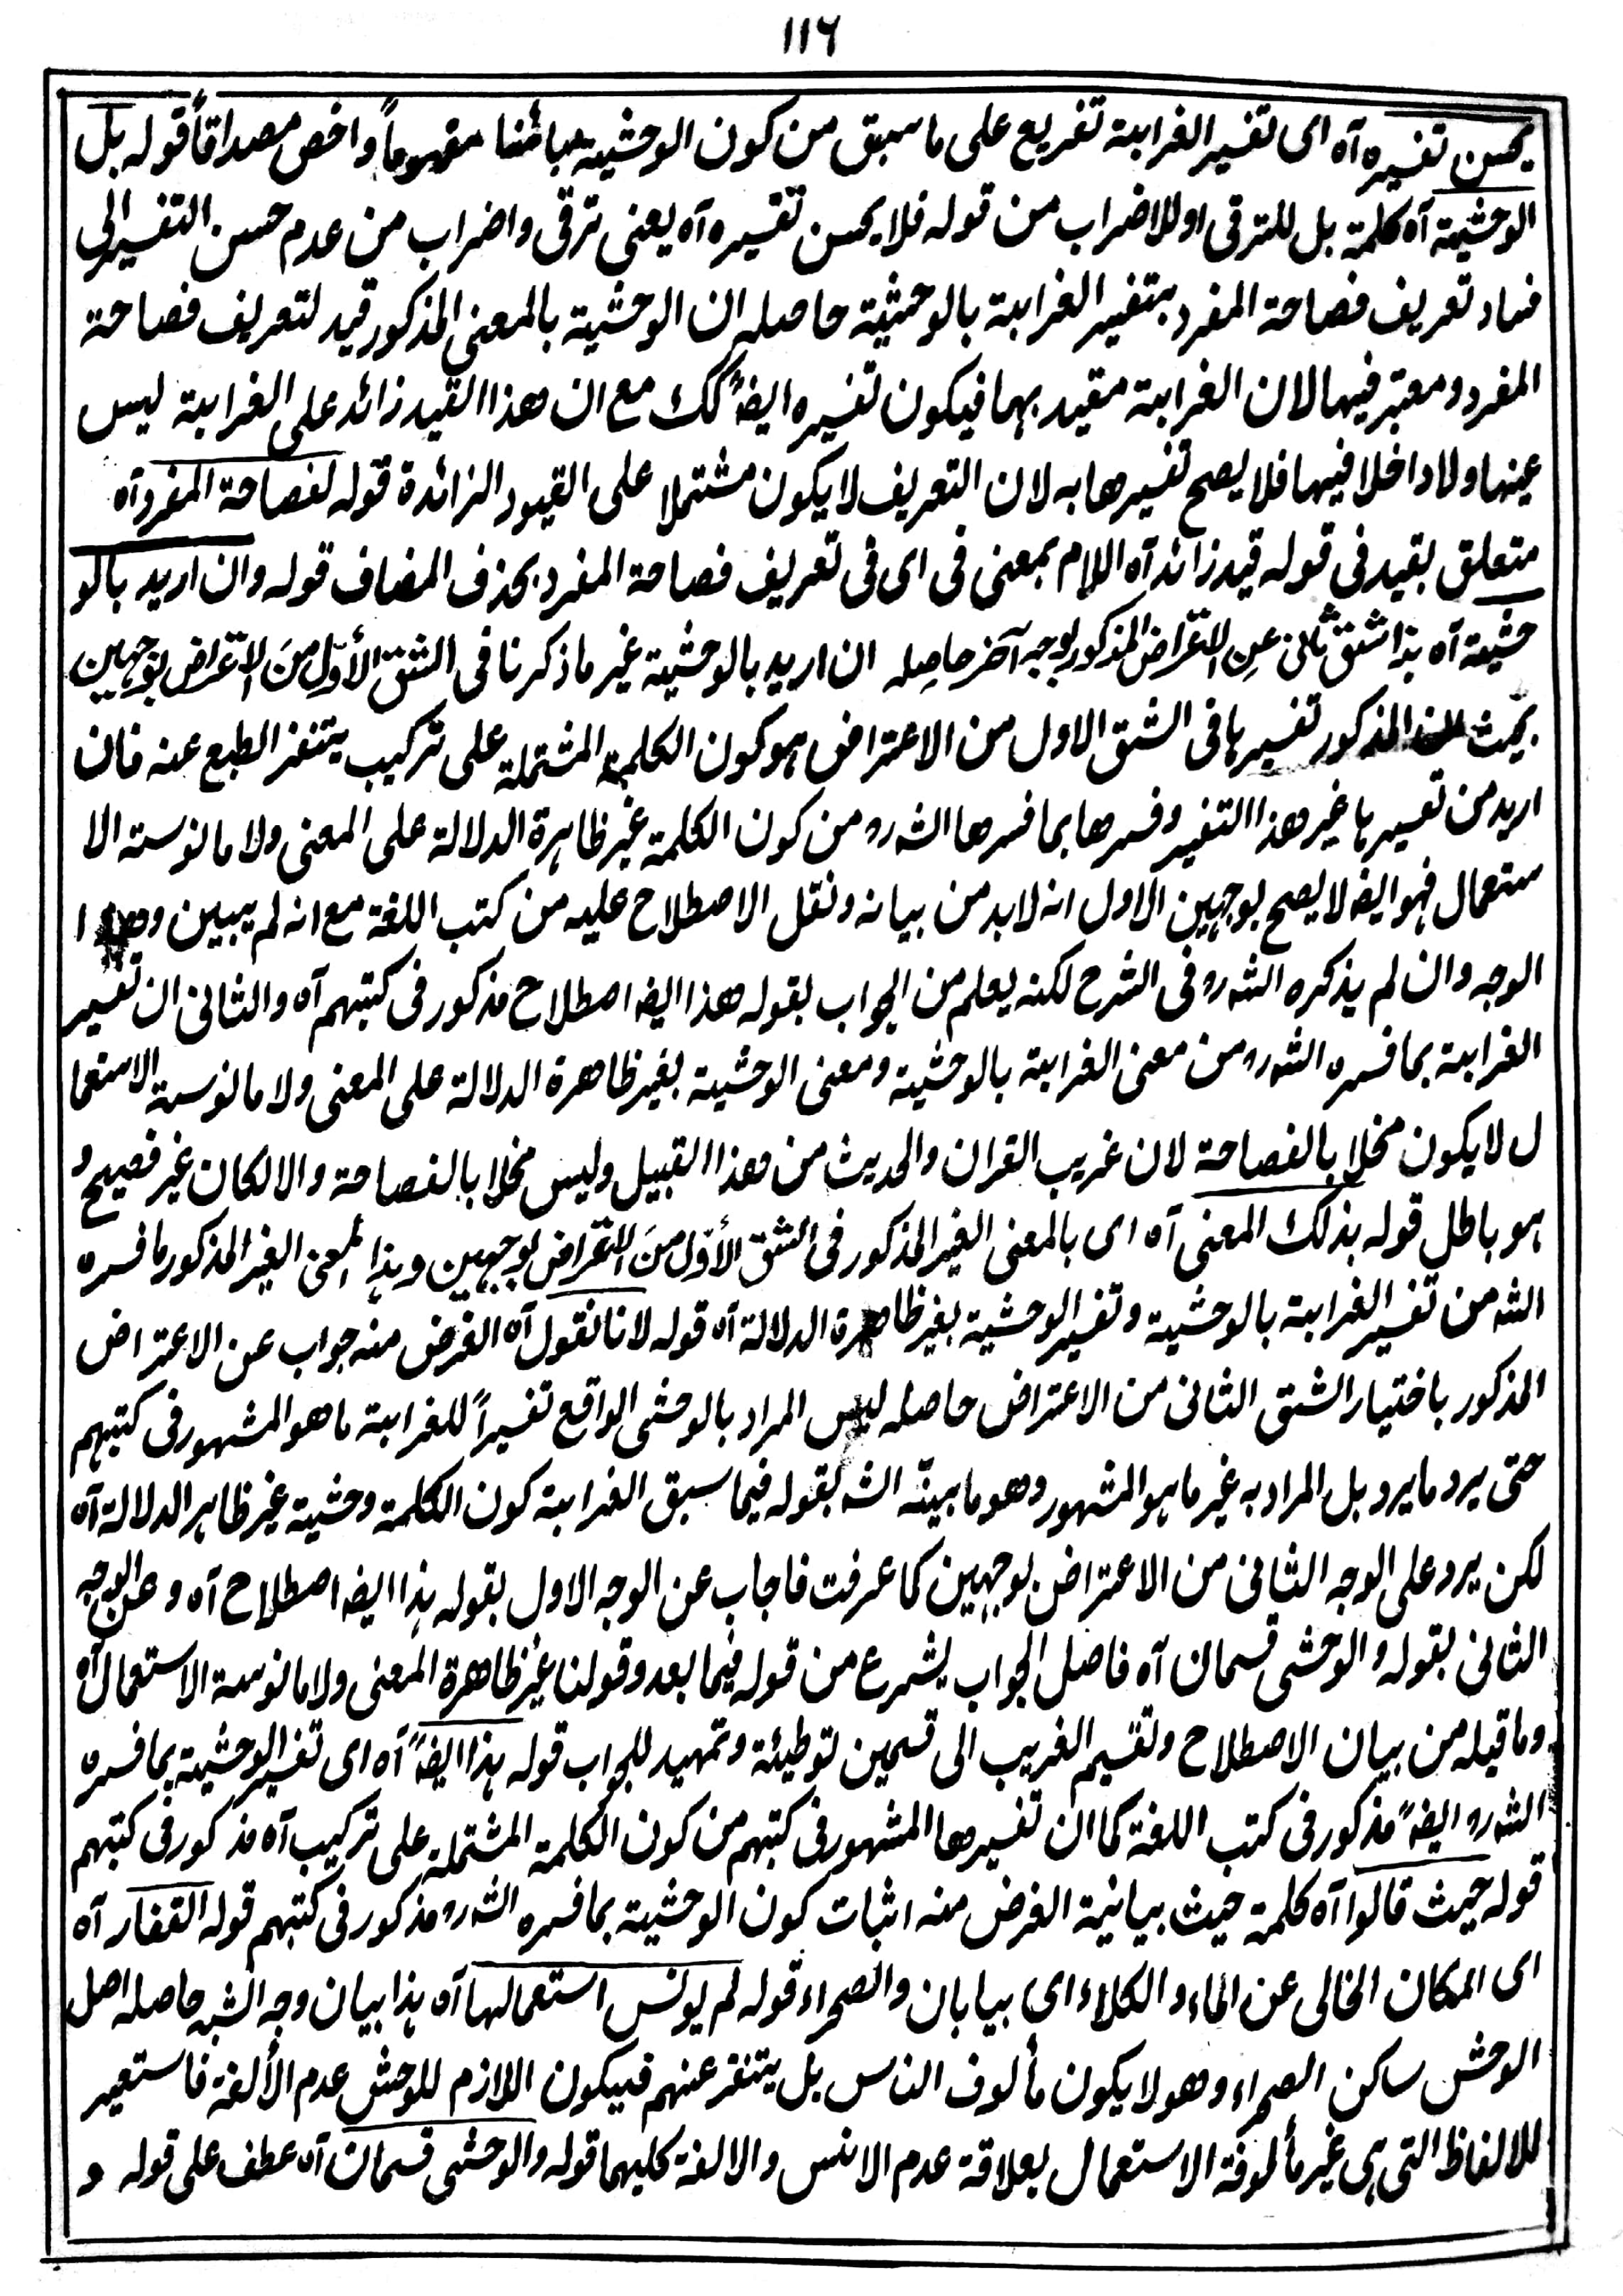 ١١٦
يحسن تفسيره آه اى تفسير الغرابة تفريع على ما سبق من كون الوحشية مبائنا مفهوماً واخص مصداقاً قوله بل
الوحشية آه كلمة بل للترقى او للاضراب من قوله فلا يحسن تفسيره آه يعنى ترقى واضراب من عدم حسن التفسير الى
فساد تعريف فصاحة المفرد بتفسير الغرابة بالوحشية حاصله ان الوحشية بالمعنى المذكور قيد لتعريف فصاحة
المفرد ومعتبر فيها لا ان الغرابة مقيد بها فيكون تفسيره ايضاً كك مع ان هذا القيد زائد على الغرابة ليس
عينها ولا داخلا فيها فلا يصح تفسيرها به لان التعريف لا يكون مشتملا على القيود الزائدة قوله لفصاحة المفرد آه
متعلق بقيد فى قوله قيد زائد آه اللام بمعنى فى اى فى تعريف فصاحة المفرد بحذف المضاف قوله وان اريد بالو
حشية آه هذا شق ثانى عن الاعتراض المذكور بوجه آخر حاصله ان اريد بالوحشية غير ما ذكرنا فى الشق الأوّل من الاعتراض بوجهين
بحيث المذكور تفسيرها فى الشق الاول من الاعتراض هو كون الكلمة المشتملة على تركيب يتنفر الطبع عنه فان
اريد من تفسيرها غير هذا التفسير وفسرها بما فسرها الشه ره من كون الكلمة غير ظاهرة الدلالة على المعنى ولا مانوسة الا
ستعمال فهو ايضا لا يصح بوجهين الاول انه لابد من بيانه ونقل الاصطلاح عليه من كتب اللغة مع انه لم يبين وهذا
الوجه وان لم يذكره الشه ره فى الشرح لكنه يعلم من الجواب بقوله هذا ايضا اصطلاح مذكور فى كتبهم آه والثانى ان تفسير
الغرابة بما فسره الشه ره من معنى الغرابة بالوحشية ومعنى الوحشية بغير ظاهرة الدلالة على المعنى ولا مانوسة الاستعما
ل لا يكون مخلا بالفصاحة لان غريب القران والحديث من هذا القبيل وليس مخلا بالفصاحة والا لكان غير فصيح و
هو باطل قوله بذلك المعنى آه اى بالمعنى الغير المذكور فى الشق الأوّل من الاعتراض بوجهين وهذا المعنى الغير المذكور ما فسره
الشه من تفسير الغرابة بالوحشية وتفسير الوحشية بغير ظاهرة الدلالة آه قوله لانا نقول آه الغرض منه جواب عن الاعتراض
المذكور باختيار الشق الثانى من الاعتراض حاصله ليس المراد بالوحشى الواقع تفسيراً للغرابة ما هو المشهور فى كتبهم
حتى يرد ما يرد بل المراد به غير ما هو المشهور وهو ما بينّه الشه بقوله فيما سبق الغرابة كون الكلمة وحشية غير ظاهر الدلالة آه
لكن يرد على الوجه الثانى من الاعتراض بوجهين كما عرفت فاجاب عن الوجه الاول بقوله هذا ايضا اصطلاح آه وعن الوجه
الثانى بقوله والوحشى قسمان آه فاصل الجواب يشرع من قوله فيما بعد وقولنا غير ظاهرة المعنى ولا مانوسة الاستعمال آه
وما قبله من بيان الاصطلاح وتقسيم الغريب الى قسمين توطيئة وتمهيد للجواب قوله هذا ايضاً آه اى تفسير الوحشية بما فسره
الشه ره ايضاً مذكور فى كتب اللغة كما ان تفسيرها المشهور فى كتبهم من كون الكلمة المشتملة على تركيب آه مذكور فى كتبهم
قوله حيث قالوا آه كلمة حيث بيانية الغرض منه اثبات كون الوحشية بما فسره الشه ره مذكور فى كتبهم قوله القفار آه
اى المكان الخالى عن الماء والكلاء اى بيابان والصحراء قوله لم يونس استعمالها آه هذا بيان وجه الشبه حاصله اصل
الوحش ساكن الصحراء وهو لا يكون مألوف الناس بل يتنفر عنهم فيكون اللازم للوحش عدم الألفة فاستعير
للالفاظ التى هى غير مألوفة الاستعمال بعلاقة عدم الانس والالفة كليهما قوله والوحشى قسمان آه عطف على قوله و